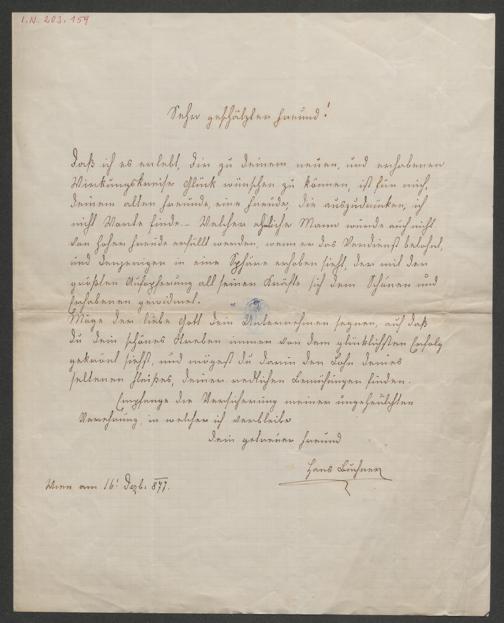 I.N. 203.159
Sehr geschätzter Freund!
Daß ich es erlebt, dir zu deinem neuen, und erhabenen
Wirkungskreise Glück wünschen zu können, ist für mich,
deinen alten Freund, eine Freude, die auszudrücken, ich
nicht Worte finde. – Welcher ehrliche Mann würde auch nicht
von hoher Freude erfüllt werden, wenn er das Verdienst belohnt,
und denjenigen in eine Sphäre erhoben sieht, der mit den
größten Aufopferung all seiner Kräfte sich dem Schönen und
Erhabenen gewidmet.
Möge der liebe Gott dein Unternehmen segnen, auf daß
du dein schönes Streben immer von dem glücklichsten Erfolg
gekrönt siehst, und mögest du darin den Lohn deines
seltenen Fleißes, deiner redlichen Bemühungen finden.
Empfange die Versicherung meiner ungeheuchelten
Verehrung, in welcher ich verbleibe
dein getreuer Freund
Hans Buchner
Wien am 16t Dezb. 877.